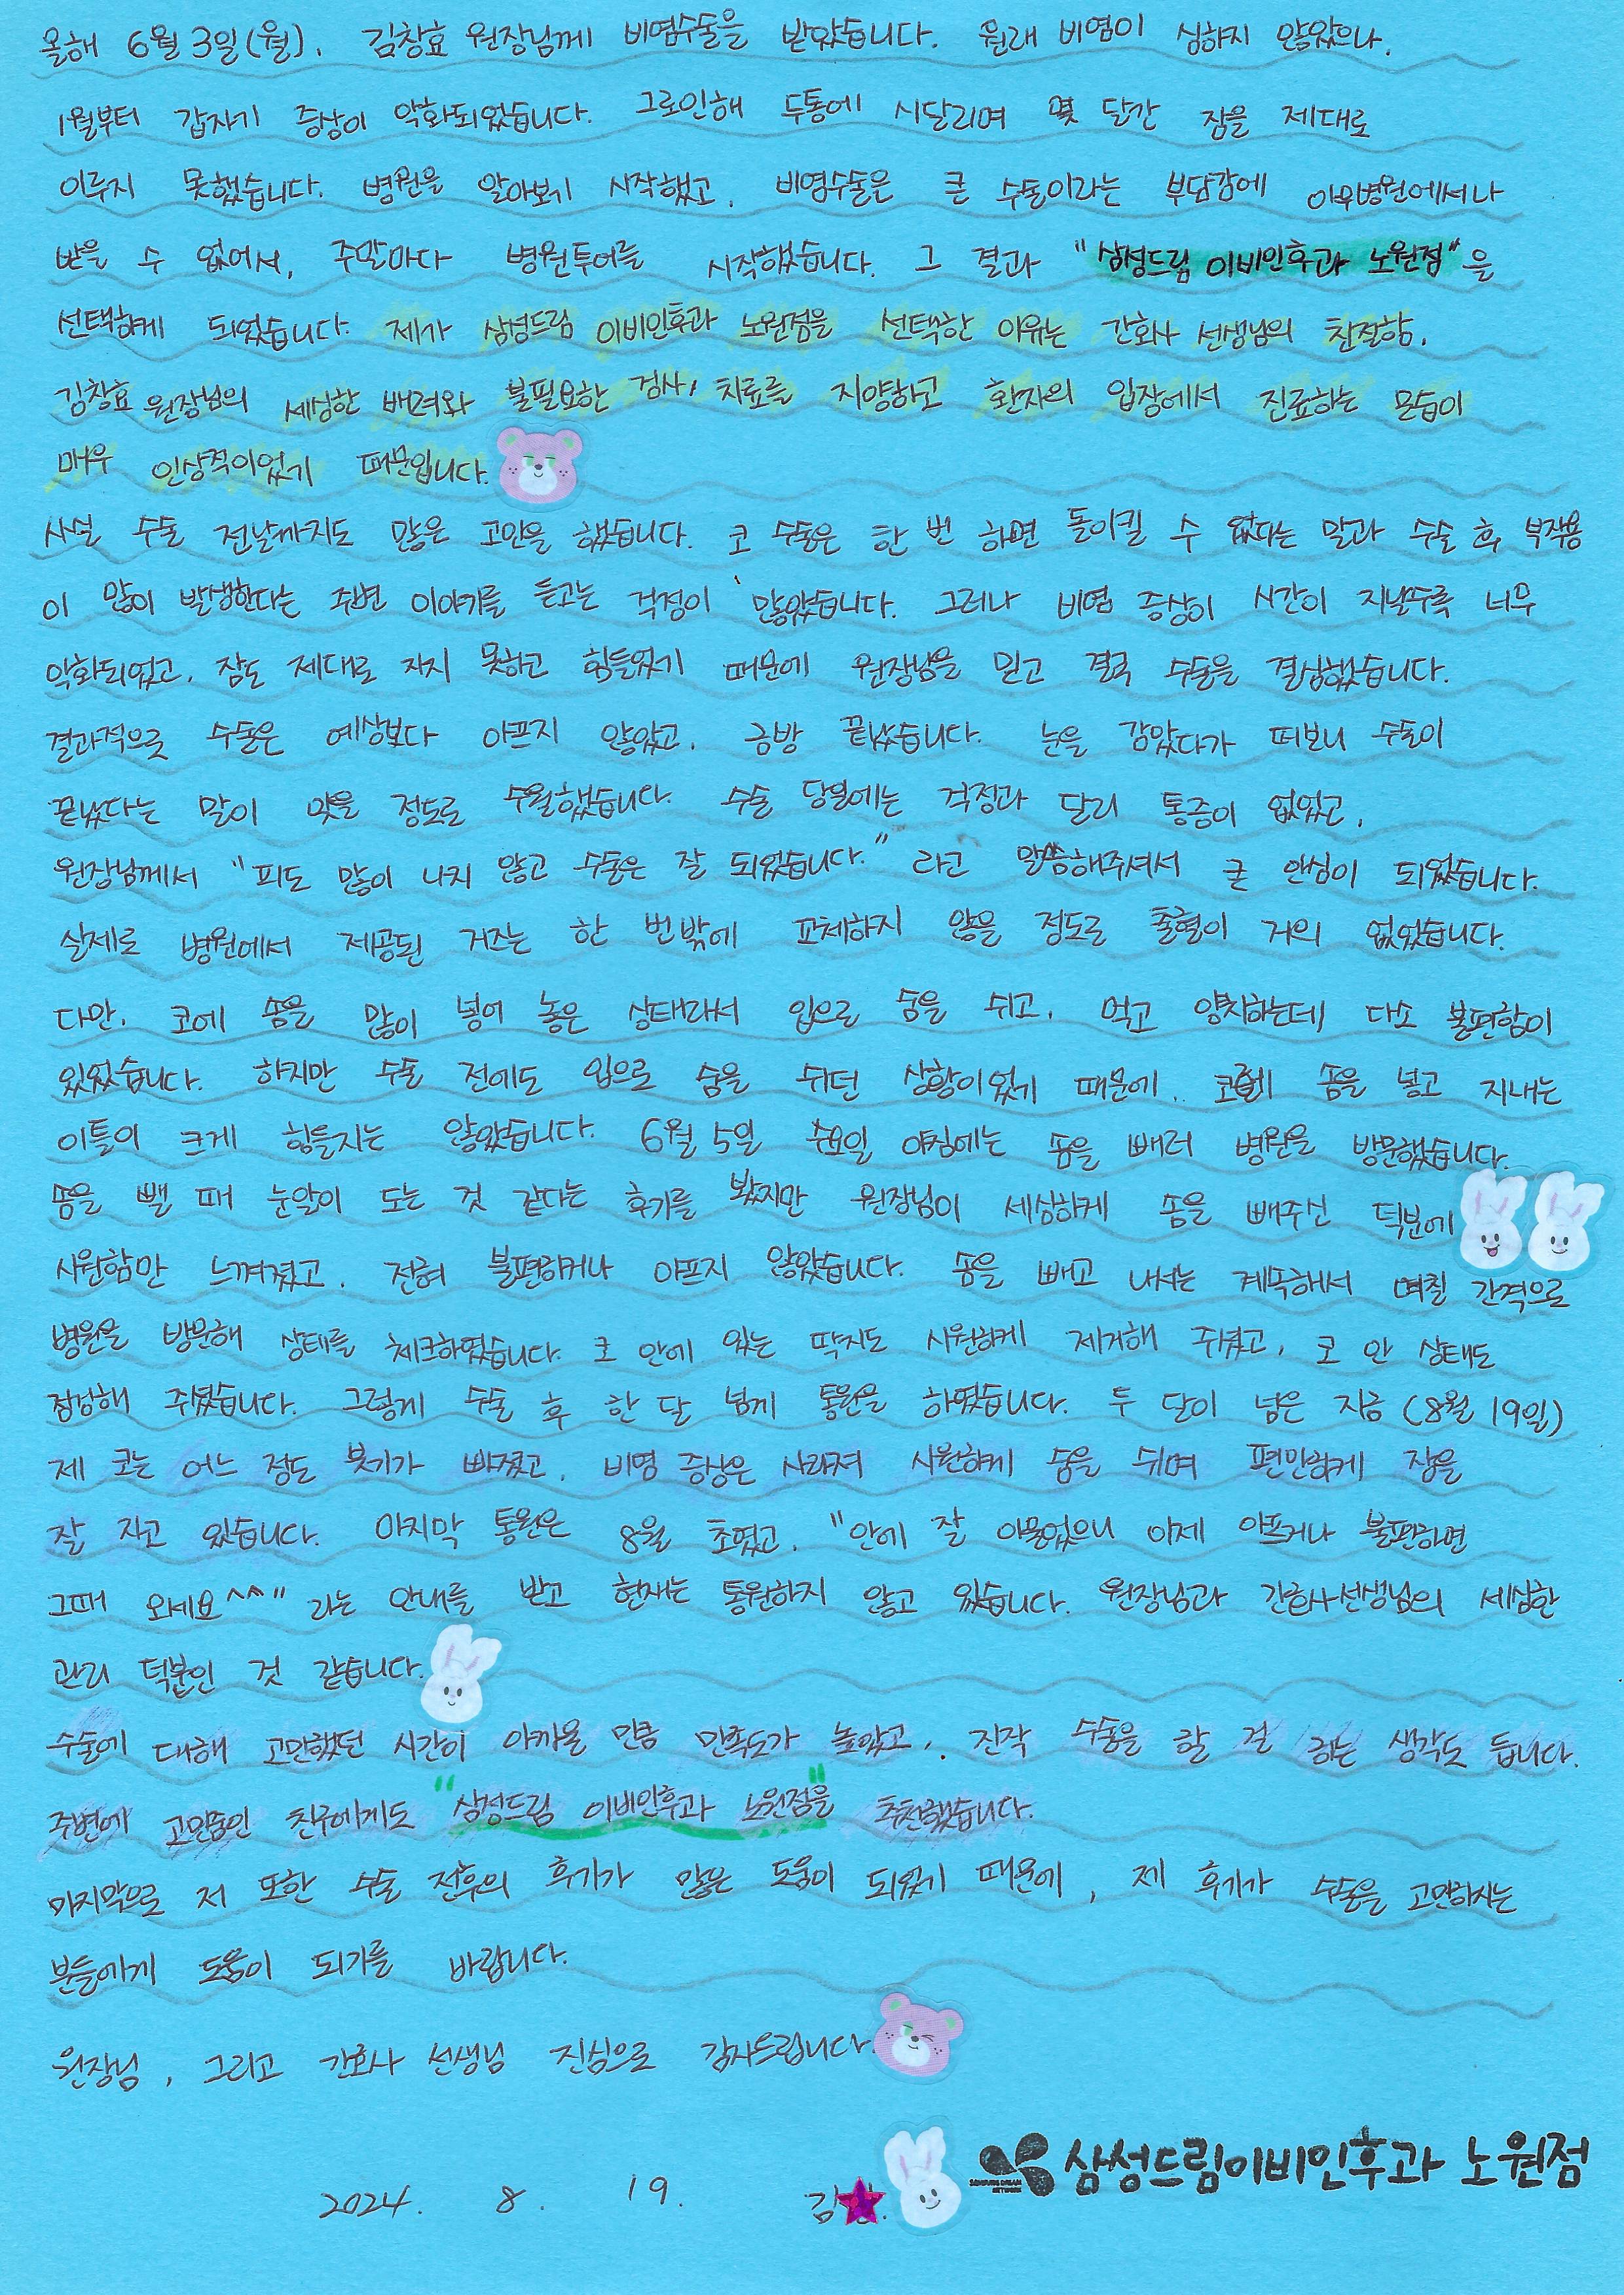 올해 6월 3일(월), 김창효 원장님께 비염수술을 받았습니다. 원래 비염이 심하지 않았으나,
1월부터 갑자기 증상이 악화되었습니다. 그로인해 두통에 시달리며 몇 달간 잠을 제대로
이루지 못했습니다. 병원을 알아보기 시작했고, 비염수술은 큰 수술이라는 부담감에 아무병원에서나
받을 수 없어서, 주말마다 병원투어를 시작했습니다. 그 결과 "삼성드림 이비인후과 노원점"을
선택하게 되었습니다. 제가 삼성드림 이비인후과 노원점을 선택한 이유는 간호사 선생님의 친절함,
김창효 원장님의 세심한 배려와 불필요한 검사, 치료를 지양하고 환자의 입장에서 진료하는 모습이
매우 인상적이었기 때문입니다.
사실 수술 전날까지도 많은 고민을 했습니다. 코 수술은 한 번 하면 돌이킬 수 없다는 말과 수술 후 부작용
이 많이 발생한다는 주변 이야기를 듣고는 걱정이 많았습니다. 그러나 비염 증상이 시간이 지날수록 너무
악화되었고, 잠도 제대로 자지 못하고 힘들었기 때문에 원장님을 믿고 결국 수술을 결심했습니다.
결과적으로 수술은 예상보다 아프지 않았고, 금방 끝났습니다. 눈을 감았다가 떠보니 수술이
끝났다는 말이 맞을 정도로 수월했습니다. 수술 당일에는 걱정과 달리 통증이 없었고,
원장님께서 "피도 많이 나지 않고 수술은 잘 되었습니다." 라고 말씀해주셔서 큰 안심이 되었습니다.
실제로 병원에서 제공된 거즈는 한 번밖에 교체하지 않을 정도로 출혈이 거의 없었습니다.
다만, 코에 솜을 많이 넣어 놓은 상태라서 입으로 숨을 쉬고, 먹고 양치하는데 다소 불편함이
있었습니다. 하지만 수술 전에도 입으로 숨을 쉬던 상황이었기 때문에, 코에 솜을 넣고 지내는
이틀이 크게 힘들지는 않았습니다. 6월 5일 수요일 아침에는 솜을 빼러 병원을 방문했습니다.
솜을 뺄 때 눈알이 도는 것 같다는 후기를 봤지만 원장님이 세심하게 솜을 빼주신 덕분에
시원함만 느껴졌고, 전혀 불편하거나 아프지 않았습니다. 솜을 빼고 나서는 계속해서 며칠 간격으로
병원을 방문해 상태를 체크하였습니다. 코 안에 있는 딱지도 시원하게 제거해 주셨고, 코 안 상태도
점검해 주셨습니다. 그렇게 수술 후 한 달 넘게 통원을 하였습니다. 두 달이 넘은 지금 (8월 19일)
제 코는 어느 정도 붓기가 빠졌고, 비염 증상은 사라져 시원하게 숨을 쉬며 편안하게 잠을
잘 자고 있습니다. 마지막 통원은 8월 초였고, "안에 잘 아물었으니 이제 아프거나 불편하면
그때 오세요^^" 라는 안내를 받고 현재는 통원하지 않고 있습니다. 원장님과 간호사선생님의 세심한
관리 덕분인 것 같습니다.
수술에 대해 고민했던 시간이 아까울 만큼 만족도가 높았고, 진작 수술을 할 걸 하는 생각도 듭니다.
주변에 고민중인 친구에게도 "삼성드림 이비인후과 노원점"을 추천했습니다.
마지막으로 저 또한 수술 전후의 후기가 많은 도움이 되었기 때문에, 제 후기가 수술을 고민하시는
분들에게 도움이 되기를 바랍니다.
원장님, 그리고 간호사 선생님 진심으로 감사드립니다.
2024. 8. 19. 김
삼성드림이비인후과 노원점